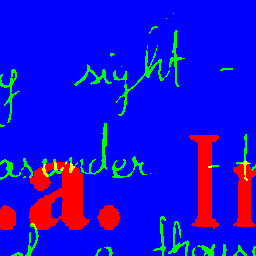 y sight -
asunder - t
.a. In
d a thous